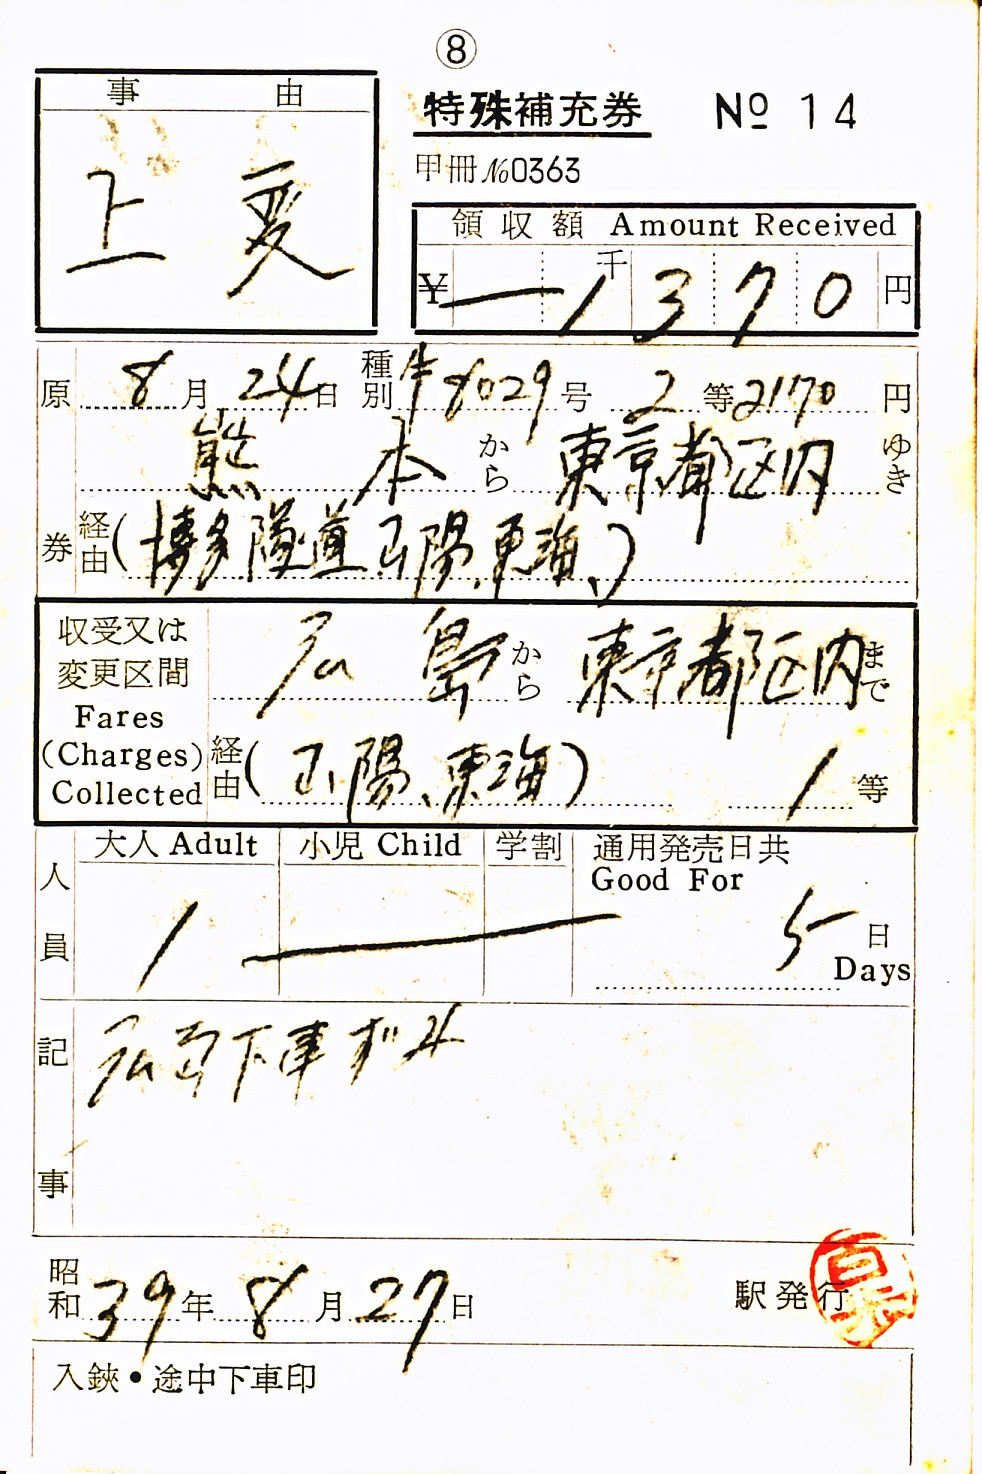 ⑧
事由
上変
特殊補充券 No 14
甲冊No0363
領収額 Amount Received
¥ー千1370円
原券
8月24日 種別 8029号 2等2170円
熊本から東京都区内ゆき
経由(博多隧道、山陽、東海、)
収受又は
変更区間
Fares
(Charges)
Collected
広島から東京都区内まで
経由(山陽、東海) 1等
人員
大人 Adult 小児 Child 学割 通用発売日共
Good For
1 ー 5日
Days
記事
広島下車ずみ
昭和39年8月27日 駅発行
入鋏・途中下車印